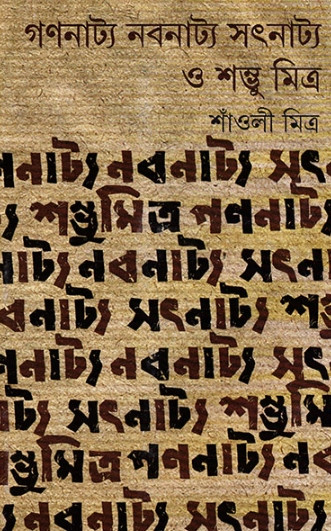 গণনাট্য নবনাট্য সৎনাট্য
ও শম্ভু মিত্র
শাঁওলী মিত্র
নাট্য নবনাট্য সৎ
শম্ভুমিত্র গণনাট্য
নাট্য নবনাট্য সৎ
নবনাট্য সৎনাট্য শ
গণনাট্য নবনাট্য স
নাট্য সৎনাট্য শম্ভু
ম্ভুমিত্র গণনাট্য নব
নবনাট্য সৎনাট্য